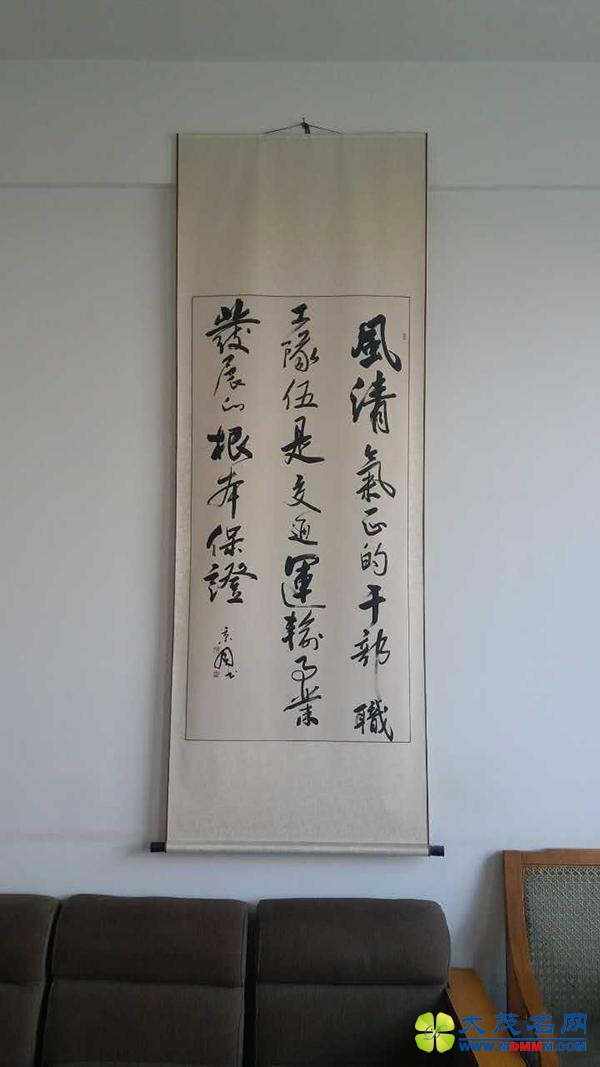 風清氣正的干部職
工隊伍是交通運輸事業
發展的根本保證
京周书
大茂名网
WWW.XDMMM.COM